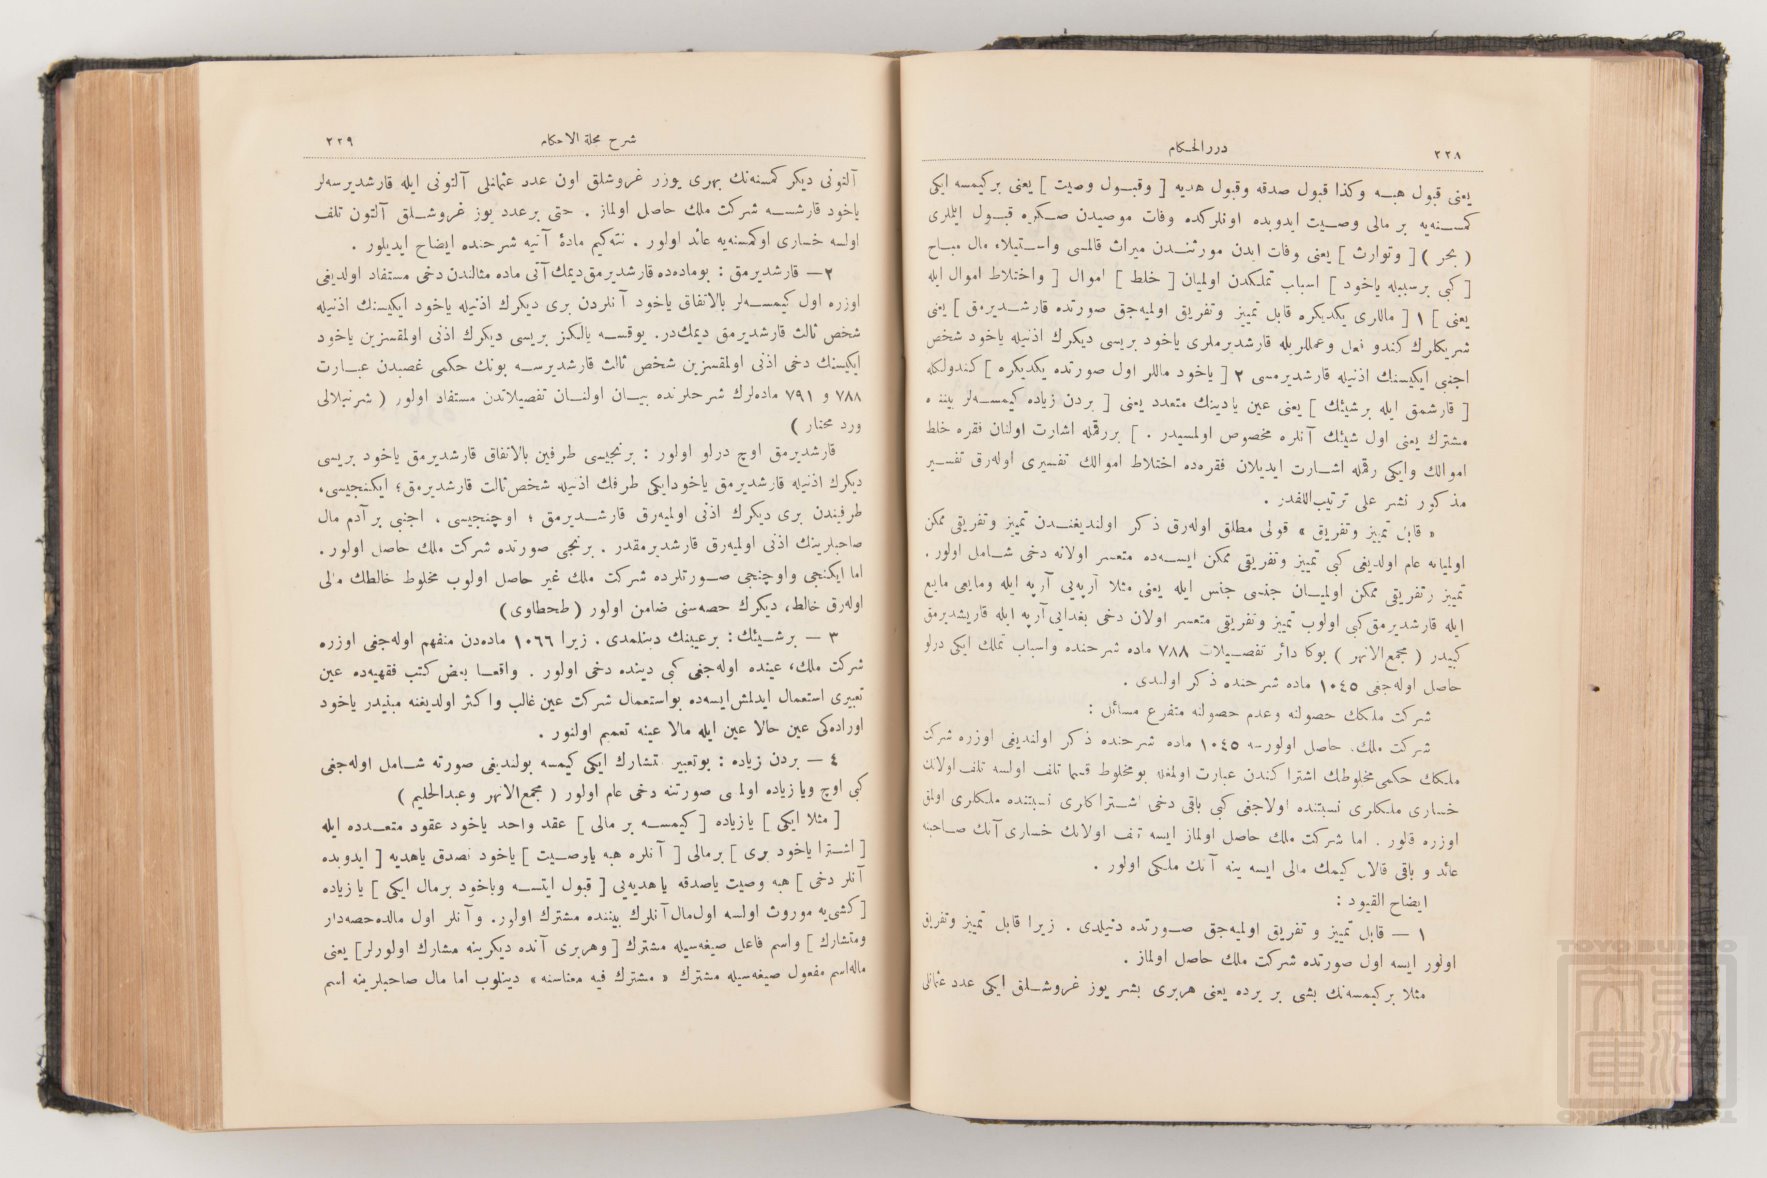 ٢٢٨
دررالحكام
يعنى قبول هبه وكذا قبول صدقه وقبول هديه [ وقبول وصيت ] يعنى بركيمسه ايكى
كمسنه‌يه بر مالى وصيت ايدوبده اونلركده وفات موصيدن صكره قبول ايتملرى
( بحر ) [ وتوارث ] يعنى وفات ايدن مورثندن ميراث قالمسى واستيلاء مال مباح
[ كبى برسببله ياخود ] اسباب تملكدن اولميان [ خلط ] اموال [ واختلاط اموال ايله
يعنى ] ١ [ ماللرى يكديكره قابل تمييز وتفريق اولميه‌جق صورتده قارشديرمق ] يعنى
شريكلرك كندو فعل وعمللريله قارشديرملرى ياخود بريسى ديكرك اذنيله ياخود شخص
اجنبى ايكيسنك اذنيله قارشديرمسى ٢ [ ياخود ماللر اول صورتده يكديكره ] كندولكله
[ قارشمق ايله برشيئك ] يعنى عين يادينك متعدد يعنى [ بردن زياده كيمسه‌لر بيننده
مشترك يعنى اول شيئك آنلره مخصوص اولمسيدر . ] بررقمله اشارت اولنان فقره خلط
اموالك وايكى رقمله اشارت ايديلان فقره‌ده اختلاط اموالك تفسيرى اوله‌رق تفسير
مذكور نشر على ترتيب‌اللفدر .
« قابل تمييز وتفريق » قولى مطلق اوله‌رق ذكر اولنديغندن تمييز وتفريقى ممكن
اوليانه عام اولديغى كبى تمييز وتفريقى ممكن ايسه‌ده متعسر اولانه دخى شامل اولور .
تمييز وتفريقى ممكن اوليان جنسى جنس ايله يعنى مثلا آرپه‌يى آرپه ايله ومايعى مايع
ايله قارشديرمق‌كبى اولوب تمييز وتفريقى متعسر اولان دخى بغدايى آرپه ايله قاريشديرمق
كبيدر ( مجمع‌الانهر ) بوكا دائر تفصيلات ٧٨٨ ماده شرحنده واسباب تملك ايكى درلو
حاصل اوله‌جغى ١٠٤٥ ماده شرحنده ذكر اولندى .
شركت ملكك حصولنه وعدم حصولنه متفرع مسائل :
شركت ملك، حاصل اولورسه ١٠٤٥ ماده شرحنده ذكر اولنديغى اوزره شركت
ملكك حكمى مخلوطك اشتراكندن عبارت اولمغله بومخلوط قسما تلف اولسه تلف اولانك
خسارى ملكلرى نسبتنده اولاجغى كبى باقى دخى اشتراكارى نسبتنده ملكلرى اولمق
اوزره قلور . اما شركت ملك حاصل اولماز ايسه تلف اولانك خسارى آنك صاحبنه
عائد و باقى قالان كيمك مالى ايسه ينه آنك ملكى اولور .
ايضاح القيود :
١ — قابل تمييز و تفريق اولميه‌جق صورتده دنيلدى . زيرا قابل تمييز وتفريق
اولور ايسه اول صورتده شركت ملك حاصل اولماز .
مثلا بركيمسه‌نك بشى بر يرده يعنى هربرى بشر يوز غروشلق ايكى عدد عثمانلى
شرح مجلة الاحكام
٢٢٩
آلتونى ديكر كمسنه‌نك بهرى يوزر غروشلق اون عدد عثمانلى آلتونى ايله قارشديرسه‌لر
ياخود قارشسه شركت ملك حاصل اولماز . حتى برعدد يوز غروشلق آلتون تلف
اولسه خسارى اوكمسنه‌يه عائد اولور . نته‌كيم ماده آتيه شرحنده ايضاح ايديلور .
٢— قارشديرمق : بوماده‌ده قارشديرمق‌ديمك آتى ماده مثالندن دخى مستفاد اولديغى
اوزره اول كيمسه‌لر بالاتفاق ياخود آنلردن برى ديكرك اذنيله ياخود ايكيسنك اذنيله
شخص ثالث قارشديرمق ديمك‌در. يوقسه يالكز بريسى ديكرك اذنى اولمقسزين ياخود
ايكيسنك دخى اذنى اولمقسزين شخص ثالث قارشديرسه بونك حكمى غصبدن عبارت
٧٨٨ و ٧٩١ ماده‌لرك شرحلرنده بيان اولنان تفصيلاتدن مستفاد اولور ( شرنبلالى
ورد محتار )
قارشديرمق اوچ درلو اولور : برنجيسى طرفين بالاتفاق قارشديرمق ياخود بريسى
ديكرك اذنيله قارشديرمق ياخودايكى طرفك اذنيله شخص‌ثالث قارشديرمق؛ ايكنجيسى،
طرفيندن برى ديكرك اذنى اولميه‌رق قارشديرمق ؛ اوچنجيسى ، اجنبى بر آدم مال
صاحبلرينك اذنى اولميه‌رق قارشديرمقدر . برنجى صورتده شركت ملك حاصل اولور .
اما ايكنجى واوچنجى صورتلرده شركت ملك غير حاصل اولوب مخلوط خالطك مالى
اوله‌رق خالط، ديكرك حصه‌سنى ضامن اولور ( طحطاوى)
٣ — برشيئك : برعينك دينلمدى . زيرا ١٠٦٦ ماده‌دن منفهم اوله‌جغى اوزره
شركت ملك، عينده اوله‌جغى كبى دينده دخى اولور . واقعا بعض كتب فقهيه‌ده عين
تعبيرى استعمال ايدلمش‌ايسه‌ده بواستعمال شركت عين غالب واكثر اولديغنه مبنيدر ياخود
اوراده‌كى عين حالا عين ايله مالا عينه تعميم اولنور .
٤ — بردن زياده : بوتعبير تشارك ايكى كيمسه بولنديغى صورته شامل اوله‌جغى
كبى اوچ ويا زياده اولمسى صورتنه دخى عام اولور ( مجمع‌الانهر وعبدالحليم )
[ مثلا ايكى ] يازياده [ كيمسه بر مالى ] عقد واحد ياخود عقود متعدده ايله
[ اشترا ياخود برى ] برمالى [ آنلره هبه ياوصيت ] ياخود تصدق ياهديه [ ايدوبده
آنلر دخى ] هبه وصيت ياصدقه ياهديه‌يى [ قبول ايتسه وياخود برمال ايكى ] يازياده
[ كشى‌يه موروث اولسه اول‌مال‌آنلرك بيننده مشترك اولور. وآنلر اول مالده‌حصه‌دار
ومتشارك ] واسم فاعل صيغه‌سيله مشترك [ وهربرى آنده ديكرينه مشارك اولورلر] يعنى
ماله‌اسم مفعول صيغه‌سيله مشترك « مشترك فيه معناسنه » دينلوب اما مال صاحبلرينه اسم
TOYO BUNKO